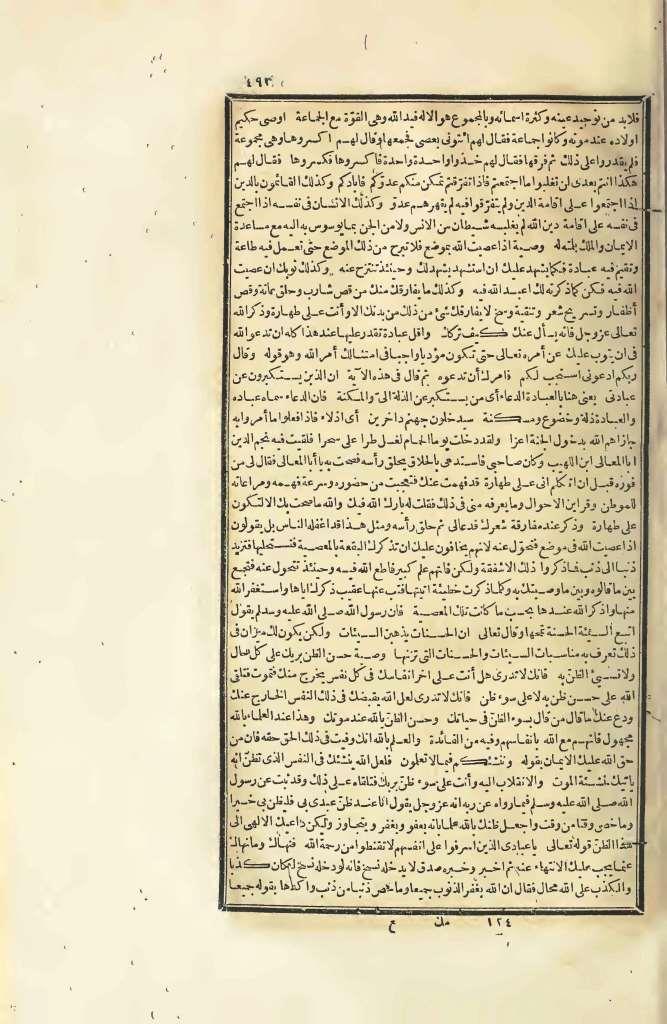 ٤٩٣
فلابد من توحيد عينه وكثرة اسمائه وبالمجموع هو الاله فيد الله وهى القوّة مع الجماعة اوصى حكيم
اولاده عند موته وكانوا جماعة فقال لهم ائتونى بعصى فجمعها وقال لهم اكسروها وهى مجموعة
فلم يقدروا على ذلك ثم فرقها فقال لهم خذوا واحدة واحدة فاكسروها فكسروها فقال لهم
هكذا انتم بعدى لن تغلبوا ما اجتمعتم فاذا تفرّقتم تمكن منكم عدوّكم فابادكم وكذلك القائمون بالدين
اذا اجتمعوا على اقامة الدين ولم يتفرّقوا فيه لم يقهرهم عدوّ وكذلك الانسان فى نفسه اذا اجتمع
فى نفسه على اقامة دين الله لم يغلبه شيطان من الانس ولا من الجن بما يوسوس به اليه مع مساعدة
الايمان والملك بلته له وصية اذا عصيت الله بموضع فلا تبرح من ذلك الموضع حتى تعمل فيه طاعة
وتقيم فيه عبادة فكما يشهد عليك ان استشهد يشهد لك وحينئذ تنتزح عنه وكذلك ثوبك ان عصيت
الله فيه فكن كما ذكرته لك اعبد الله فيه وكذلك ما يفارقك منك من قص شارب وحلق عانة وقص
أظفار وتسريح شعر وتنقية وسخ لا يفارقك شئ من ذلك من بدنك الا وأنت على طهارة وذكر الله
تعالى عز وجل فانه يسأل عنك كيف تركك واقل عبادة تقدر عليها عند هذا كله ان تدعو الله
فى ان يتوب عليك عن أمره تعالى حتى تكون مؤديا واجبا فى امتثالك أمر الله وهو قوله وقال
ربكم ادعونى استجب لكم فامرك أن تدعوه ثم قال فى هذه الآية ان الذين يستكبرون عن
عبادتى يعنى هنا بالعبادة الدعاء أى من يستكبر عن الذلة الىّ والمسكنة فان الدعاء سماه عباده
والعبادة ذلة وخضوع ومسكنة سيدخلون جهنم داخرين أى اذلاء فاذا فعلوا ما أمروا به
جازاهم الله بدخول الجنة اعزا ولقد دخلت يوما الحمام لغسل طرا على سحرا فلقيت فيه نجم الدين
ابا المعالى ابن اللهيب وكان صاحبى فاستدعى بالحلاق يحلق رأسه فصحت به يا أبا المعالى فقال لى من
فوره قبل ان اتكلم انى على طهارة قد فهمت عنك فتعجبت من حضوره وسرعة فهمه ومراعاته
للموطن وقراين الاحوال وما يعرفه منى فى ذلك فقلت له بارك الله فيك والله ما صحت بك الا لتكون
على طهارة وذكر عند مفارقة شعرك فدعا لى ثم حلق رأسه ومثل هذا قد اغفله الناس بل يقولون
اذا عصيت الله فى موضع فتحوّل عنه لانهم يخافون عليك ان تذكرك البقعة بالمعصية فتستحليها فتزيد
ذنبا الى ذنب فما ذكروا ذلك الا شفقة ولكن فاتهم علم كبير فاطع الله فيه وحينئذ تتحول عنه فتجمع
بين ما قالوه وبين ما وصيتك به وكلما ذكرت خطيئة اتيتها فتب عنها عقيب ذكرك اياها واستغفر الله
منها واذكر الله عندها بحسب ما كانت تلك المعصية فان رسول الله صلى الله عليه وسلم يقول
اتبع السيئة الحسنة تمحها وقال تعالى ان الحسنات يذهبن السيئات ولكن يكون لك ميزان فى
ذلك تعرف به مناسبات السيئات والحسنات التى تزنها وصية حسن الظن بربك على كل حال
ولا تسئ الظنّ به فانك لا تدرى هل أنت على اخر انفاسك فى كل نفس يخرج منك فتموت فتلقى
الله على حسن ظن به لا على سوء ظن فانك لا تدرى لعل الله يقبضك فى ذلك النفس الخارج عنك
ودع عنك ما قال من قال بسوء الظنّ فى حياتك وحسن الظنّ بالله عند موتك وهذا عند العلماء بالله
مجهول فانهم مع الله بانفاسهم وفيه من الفائدة والعلم بالله انك وفيت فى ذلك الحق حقه فان من
حق الله عليك الايمان بقوله وننشئكم فيما لا تعلمون فلعل الله ينشئك فى النفس الذى تظنّ انه
ياتيك نشئة الموت والانقلاب اليه وأنت على سوء ظنّ بربك فتلقاه على ذلك وقد ثبت عن رسول
الله صلى الله عليه وسلم فيما رواه عن ربه انه عز وجل يقول انا عند ظنّ عبدى بى فليظن بى خيرا
وما خص وقتا من وقت واجعل ظنك بالله علما بانه يعفو ويغفر ويتجاوز وليكن داعيك الالهى الى
هذا الظنّ قوله تعالى يا عبادى الذين اسرفوا على انفسهم لا تقنطوا من رحمة الله فنهاك وما نهاك
عنه يجب عليك الانتهاء عنه ثم اخبر وخبره صدق لا يدخله نسخ فانه لو دخله نسخ لكان كذبا
والكذب على الله محال فقال ان الله يغفر الذنوب جميعا وما خص ذنبا من ذنب واكدها بقوله جميعا
١٢٤ مك ع